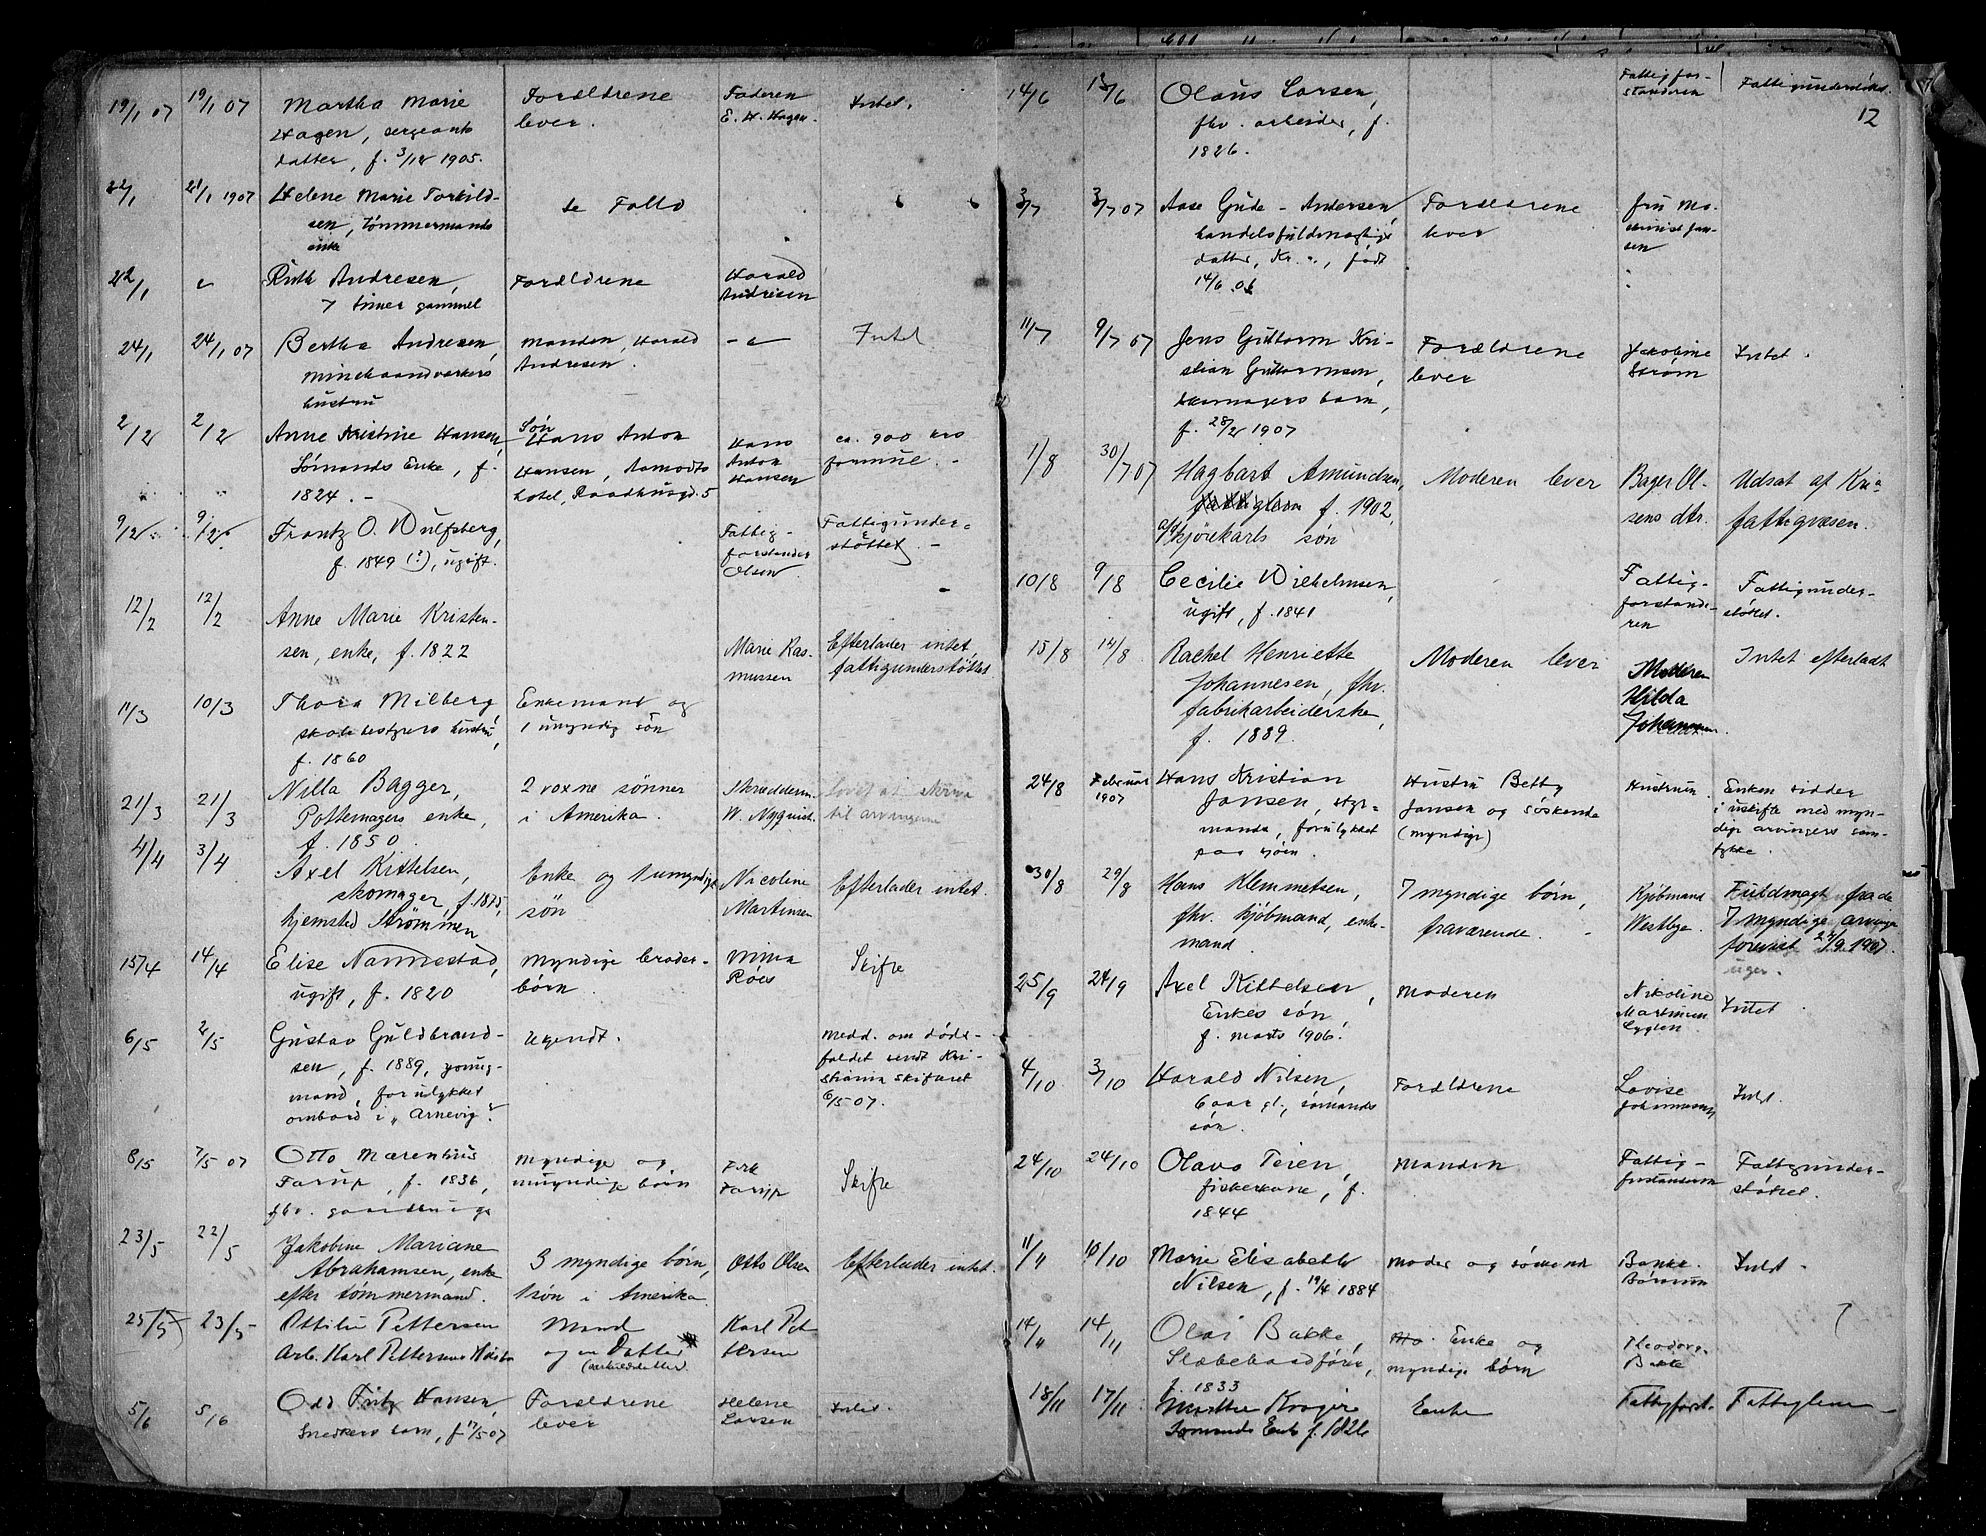 19/1 07 19/1 07 Martha Marie Forældrene Faderen Intet.
Hagen, sergeants lever. E. H. Hagen.
datter, f. 3/12 1905.
22/1 21/1 1907 Helene Marie Torkild- se Folio
sen, tømmermands
enke
22/1 Ruth Andresen, Forældrene Harald
7 timer gammel Andresen
24/1 24/1 07 Bertha Andresen, Manden, Harald Intet
hustru Andresen.
2/2 2/2 Anne Kristine Hansen, Søn Hans Anton Hans ca. 900 kro
Sømands Enke, f. Hansen, Aamodts Anton formue. -
1824. - hotel, Raadhusgd. 5 Hansen
9/2 9/2 Frantz O. Wulfsberg, Fattig- Fattigunder-
f. 1849 (?), ugift. forstander støttet. -
Olsen
12/2 12/2 Anne Marie Kristen-
sen, enke, f. 1822 Marie Ras- Efterlader intet,
mussen fattigunderstøttet
11/3 10/3 Thora Milberg Enkemand og
skolebestyrers hustru, 1 umyndig søn
f. 1860
21/3 21/3 Nilla Bagger, 2 voxne sønner Skrædderm. lovet at skrive
Pottemagers enke, i Amerika. W. Nyquist. til arvingerne
f. 1850.
4/4 3/4 Axel Kittelsen, Enke og 1 umyndig Nicoline Efterlader intet.
skomager, f. 1875, søn Martinsen
hjemsted Strømmen
15/4 14/4 Elise Nannestad, Myndige broder- Mina Skifte
ugift, f. 1820 børn. Röes
6/5 2/5 Gustav Guldbrand- Ugendt. Medd. om døds-
sen, f. 1889, young- faldet sendt Kri-
mand, forulykket stiania skifteret
ombord i "Arnevig". 6/5 07.
8/5 7/5 07 Otto Mærenthius Myndige og Frk Skifte
Farup, f. 1836, umyndige børn Farup
fhv.
23/5 22/5 Jakobine Mariane 3 myndige børn, Otto Olsen Efterlader intet.
Abrahamsen, enke 1 søn i Amerika
efter tømmermand.
25/5 23/5 Ottilie Pettersen Mand Karl Pet
Arb. Karl Pettersens Hustru og en Datter tersen
5/6 5/6 Odd Fritz Hansen, Forældrene Helene Intet.
Snedkers barn, f. 17/5 07 lever Larsen
14/6 13/6 Olaus Larsen, Fattigfor- Fattigunderstøttet.
fhv. arbeider, f. standeren 12
1826.
3/7 3/7 07 Aase Gude-Andersen, Forældrene fru Ma-
handelsfuldmægtigs lever skinist Jan-
datter, Kr.a., født sen
14/6 06
11/7 9/7 07 Jens Guttorm Kri- Forældrene Jakobine Intet.
stian Guttormsen, lever Strøm
skomagers barn,
f. 28/2 1907
1/8 30/7 07 Hagbart Amundsen, Moderen lever Bager Ol- Udsat af Kr.a
f. 1902, sens dtr. fattigvæsen.
kjørekarls søn
10/8 9/8 Cecilie Wilhelmsen, Fattig- Fattigunder-
ugift, f. 1841 forstande- støttet.
ren
15/8 14/8 Rachel Henriette Moderen lever Moderen Intet efterladt
Johannesen, fhv. Hilda
fabrikarbeiderske, Johannesen.
f. 1889.
24/8 Februar Hans Kristian Hustru Betty Hustruen. Enken sidder
1907 Jansen, styr- Jansen og søskende i uskifte med myn-
mand, forulykket (myndige) dige arvingers sam-
paa sjøen. tykke.
30/8 29/8 Hans Klemmetsen, 7 myndige børn, Kjøbmand Fuldmagt fra de
fhv. kjøbmand, enke- fraværende. Westbye. 7 myndige arvinge
mand forevist 24/9 1907.
25/9 24/9 Axel Kittelsen, Moderen Nikoline Intet.
Enkes søn, Martinsen
f. marts 1906.
4/10 3/10 Harald Nilsen, Forældrene Lovise Intet.
6 aar gl., sømands Johannesen
søn.
24/10 24/10 Olava Teien, Manden Fattig- Fattigunder-
fiskerkone, f. forstanderen støttet.
1844
11/11 10/10 Marie Elisabeth Moder og søskende Intet.
Nilsen, f. 19/4 1884
14/11 14/11 Olai Bakke, Enke og Theodor
Slæbebaadfører, myndige børn Bakke
f. 1833
18/11 17/11 Krogier Enke Fattigforst. Fattiglem
Sømands Enke f. 1826